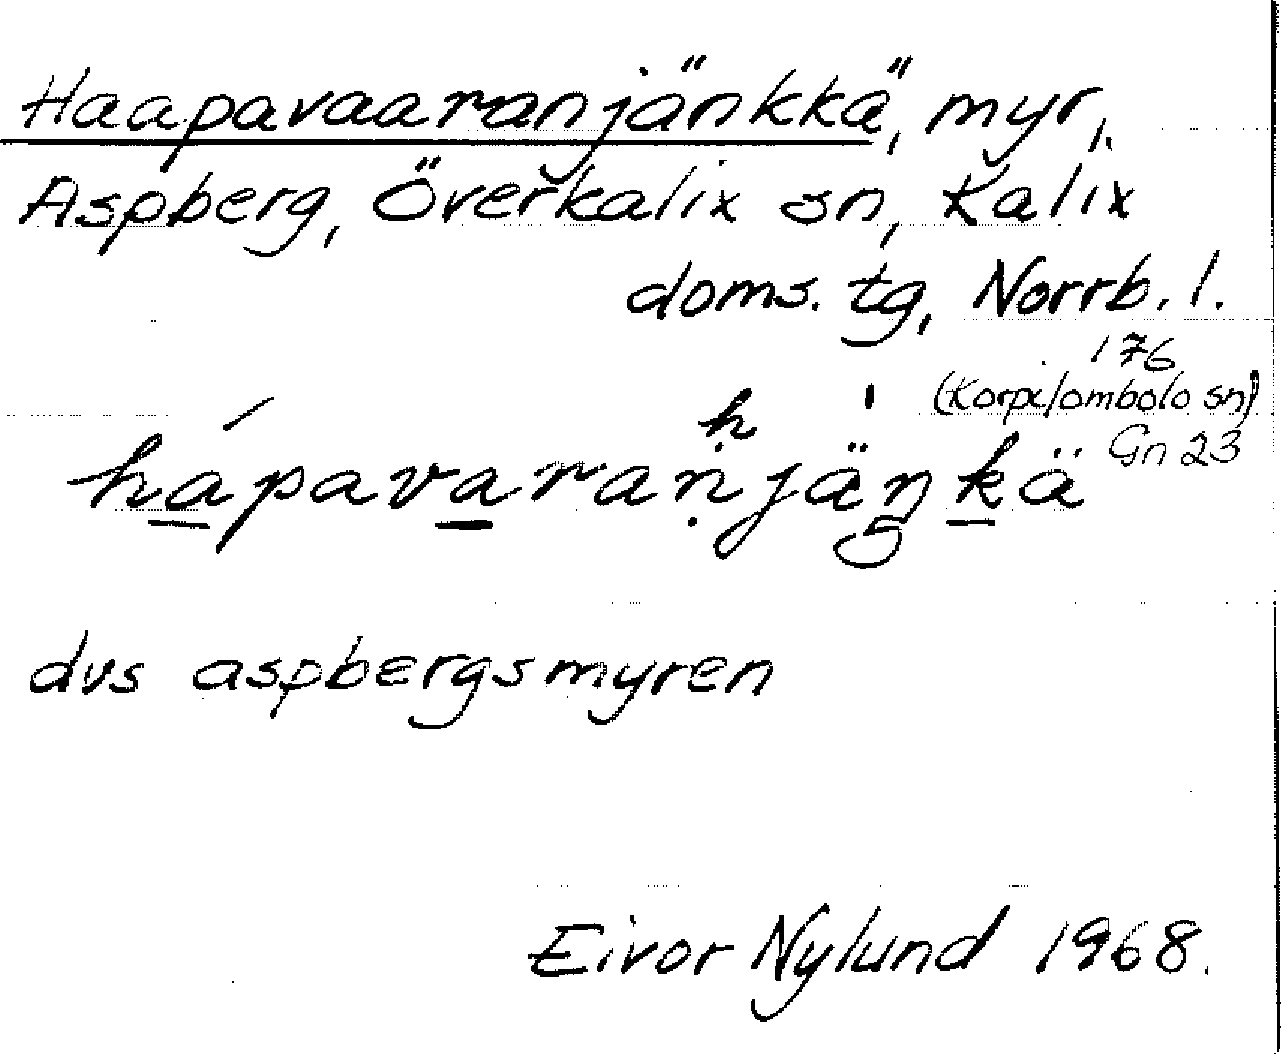 Haapavaaranjänkkä, myr,
Aspberg, Överkalix sn, Kalix
doms. tg, Norrb. l.
176
(Korpilombolo sn)
Gn 23
h
hápavaranjäŋkä
dvs aspbergsmyren
Eivor Nylund 1968.